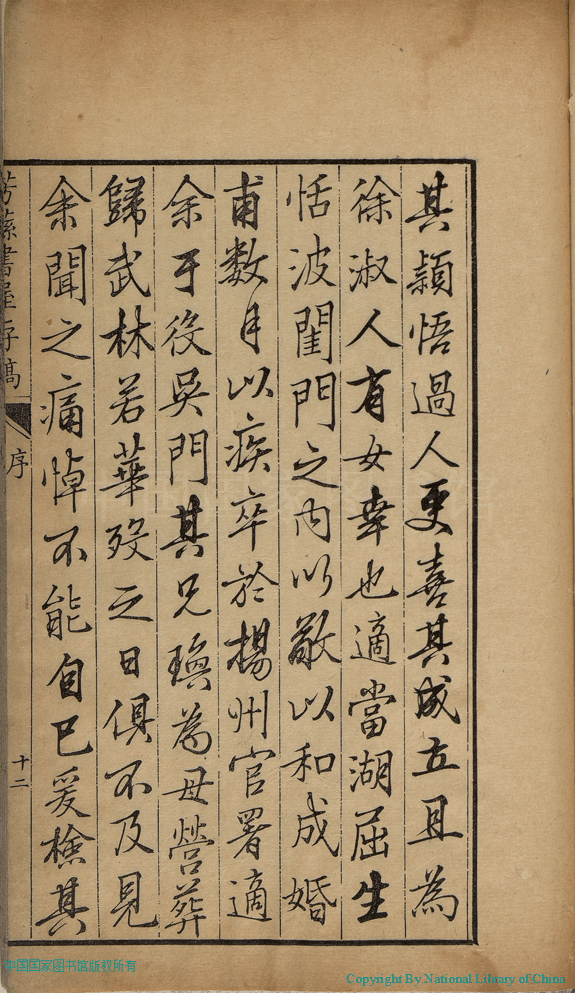 其穎悟過人更喜其成立且為
徐淑人有女幸也適當湖屈生
恬波閨門之內以敬以和成婚
甫数月以疾卒於楊州官署適
余于役吳門其兄璵為母營葬
歸武林若華歿之日俱不及見
余聞之痛悼不能自已爰檢其
蓀書屋存稿
序
十二
中国国家图书馆版权所有
Copyright By National Library of China